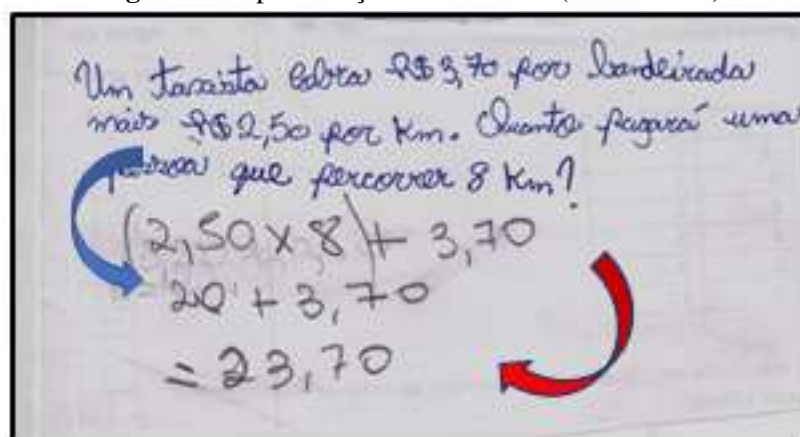 Um taxista cobra R$ 3,70 por bandeirada
mais R$ 2,50 por Km. Quanto pagará uma
pessoa que percorrer 8 Km?
(2,50 x 8) + 3,70
20 + 3,70
= 23,70